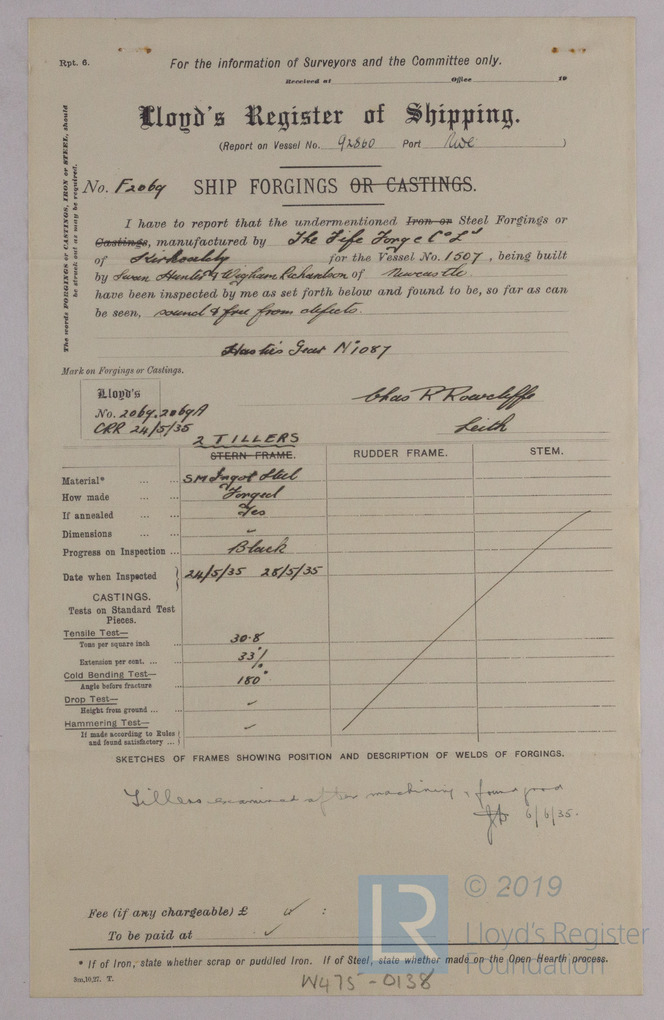 Rpt. 6.
For the information of Surveyors and the Committee only.
Received at Office 19
Lloyd's Register of Shipping.
(Report on Vessel No. 92860 Port Nwc )
The words FORGINGS or CASTINGS, IRON or STEEL, should
be struck out as may be required.
No. F2069 SHIP FORGINGS OR CASTINGS.
I have to report that the undermentioned Iron or Steel Forgings or
Castings, manufactured by The Fife Forge Co Ld
of Kirkcaldy for the Vessel No. 1507, being built
by Swan Hunter & Wigham Richardson of Newcastle
have been inspected by me as set forth below and found to be, so far as can
be seen, sound & free from defects.
Hastie's Gear No 1087
Mark on Forgings or Castings.
Lloyd's
No. 2069.2069A
CRR 24/5/35
Chas R Rowcliffe
Leith
2 TILLERS
STERN FRAME. RUDDER FRAME. STEM.
Material* ... ... SM Ingot Steel
How made ... ... Forged
If annealed ... ... Yes
Dimensions ... ...
Progress on Inspection ... Black
Date when Inspected } 24/5/35 28/5/35
CASTINGS.
Tests on Standard Test
Pieces.
Tensile Test—
Tons per square inch ... 30.8
Extension per cent. ... ... 33%
Cold Bending Test—
Angle before fracture ... 180°
Drop Test—
Height from ground ... ... ✓
Hammering Test—
If made according to Rules
and found satisfactory ... } ✓
SKETCHES OF FRAMES SHOWING POSITION AND DESCRIPTION OF WELDS OF FORGINGS.
Tillers examined after machining & found good
6/6/35.
Fee (if any chargeable) £ :
To be paid at ✓
* If of Iron, state whether scrap or puddled Iron. If of Steel, state whether made on the Open Hearth process.
3m,10,27. T.
W475-0138
LR
© 2019
Lloyd's Register
Foundation